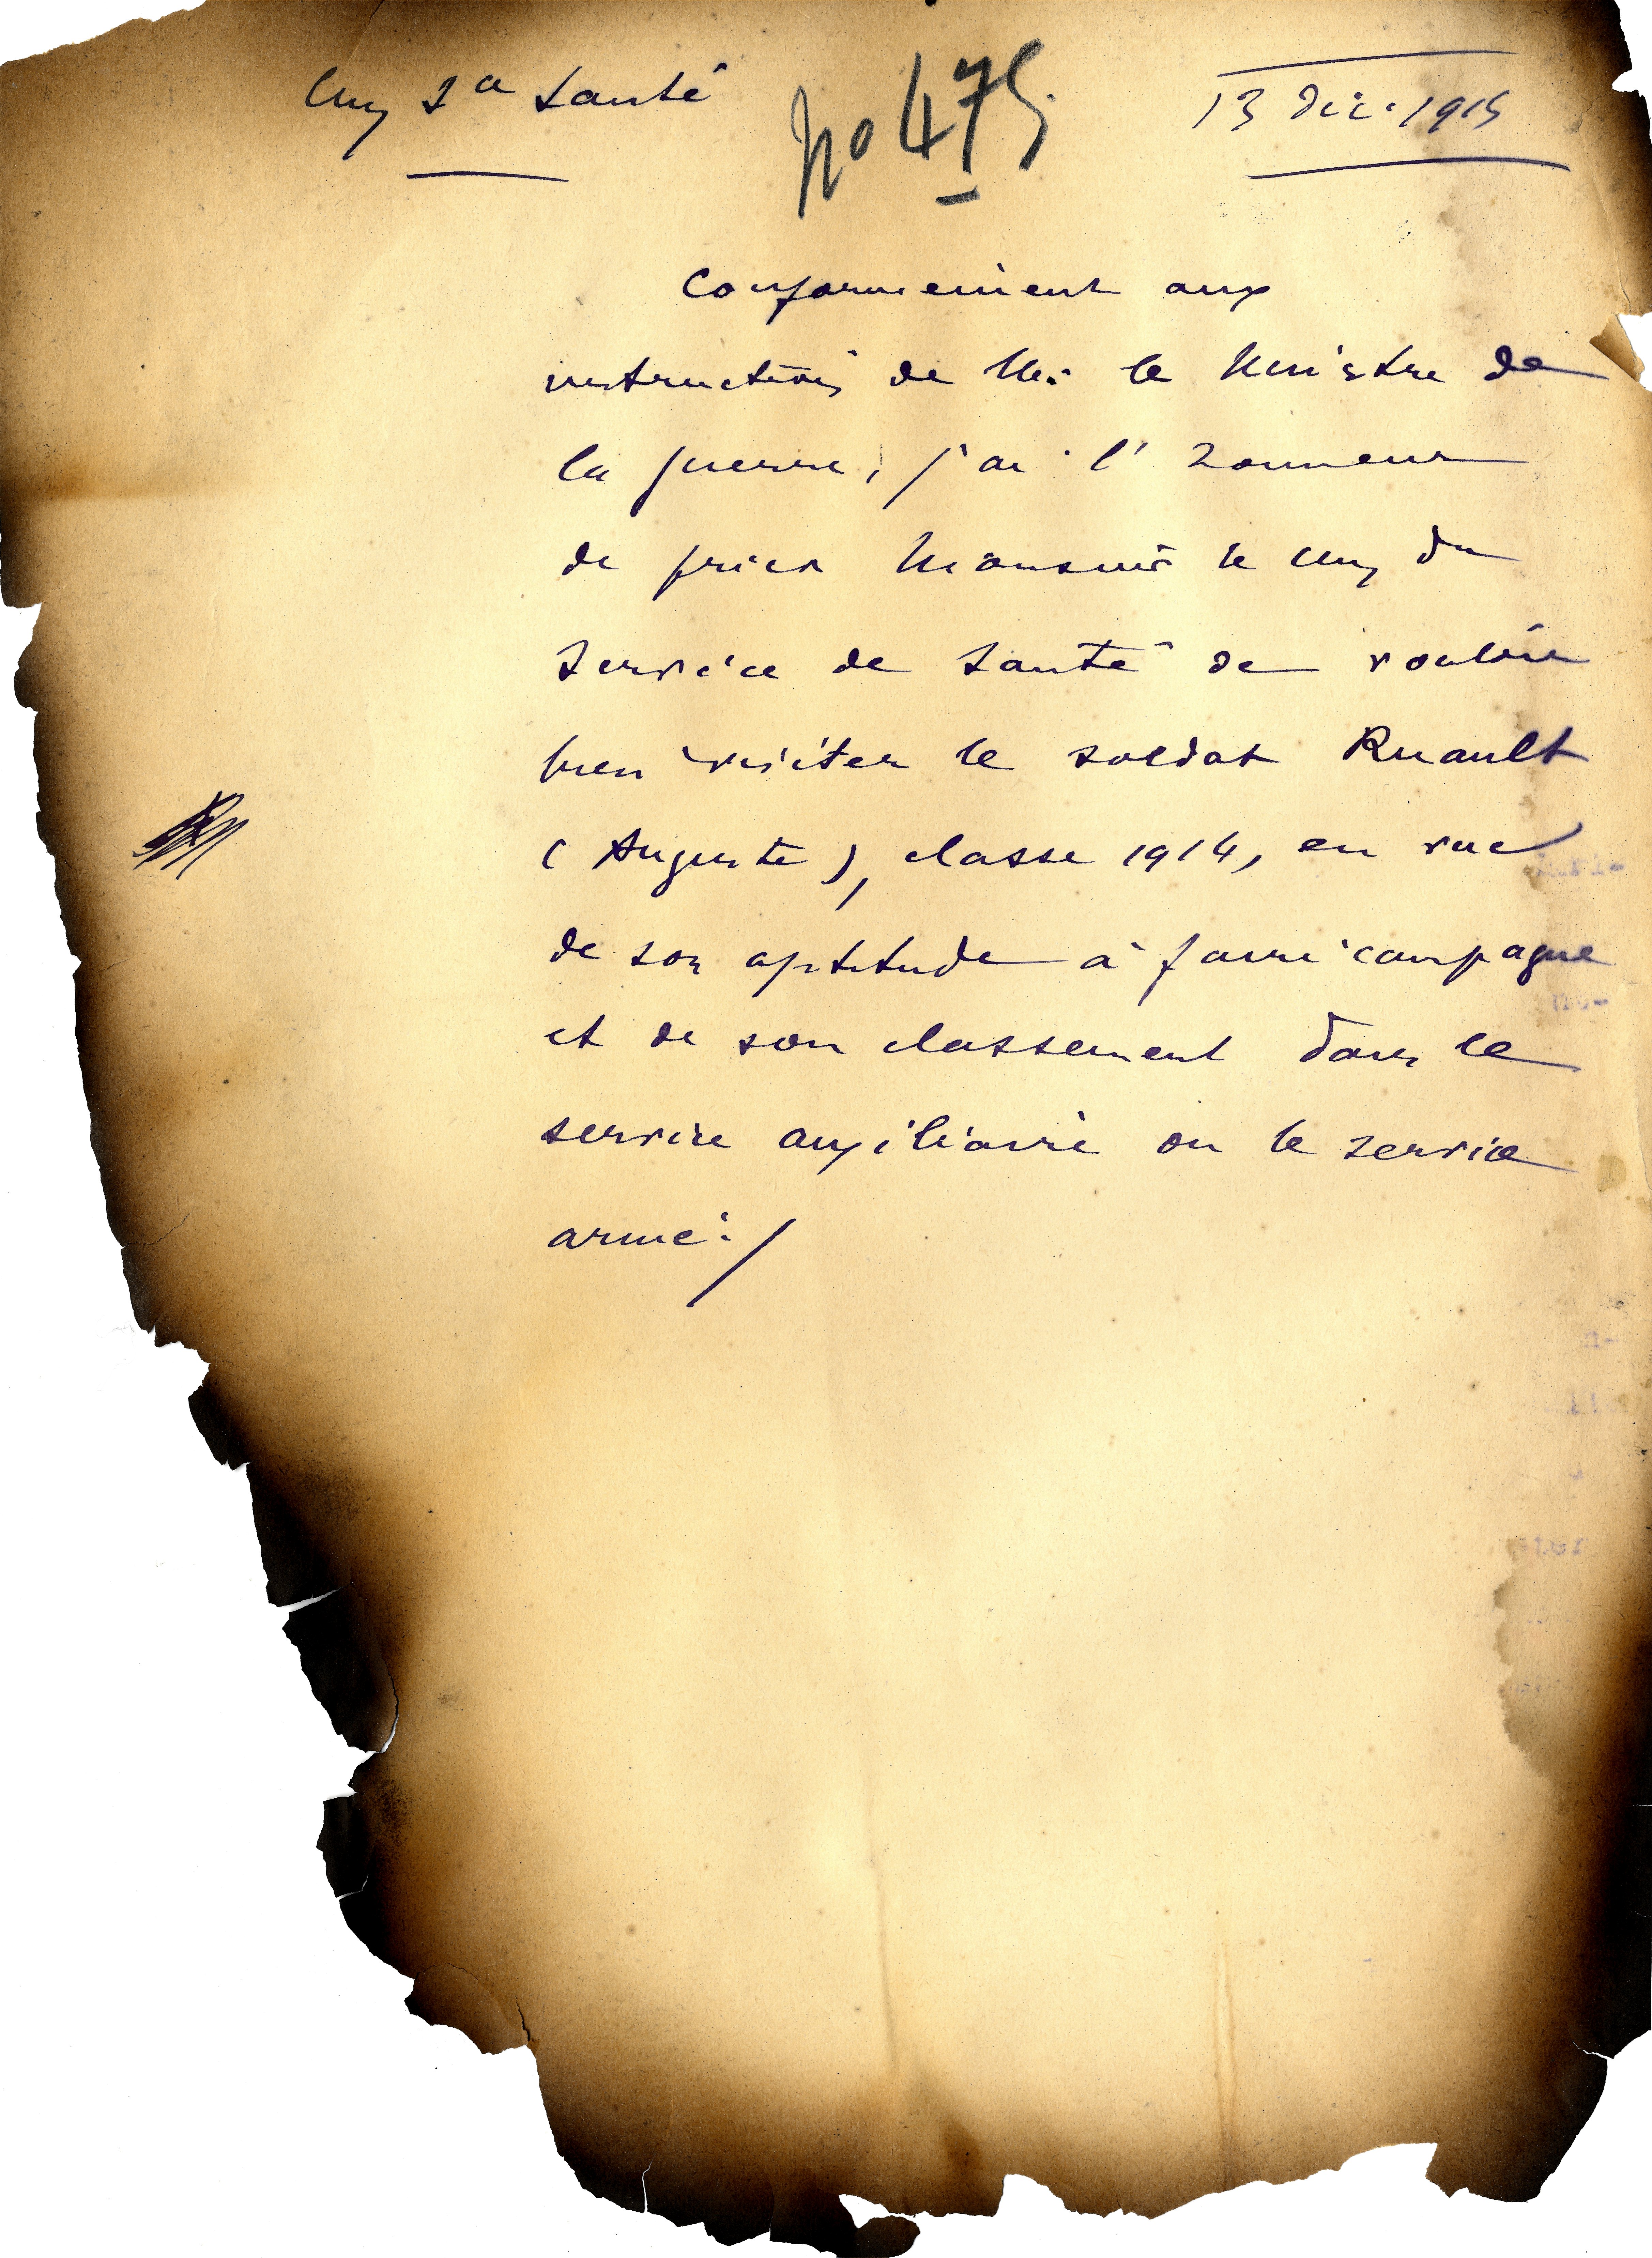 Santé
no 475
13 Déc. 1915
Conformément aux
instructions de M. le Ministre de
la guerre, j'ai l'honneur
de prier Monsieur le du
Service de Santé de vouloir
bien visiter le soldat Ruault
(Auguste), classe 1914, en vue
de son aptitude à faire campagne
et de son classement dans le
service auxiliaire ou le service
armé./